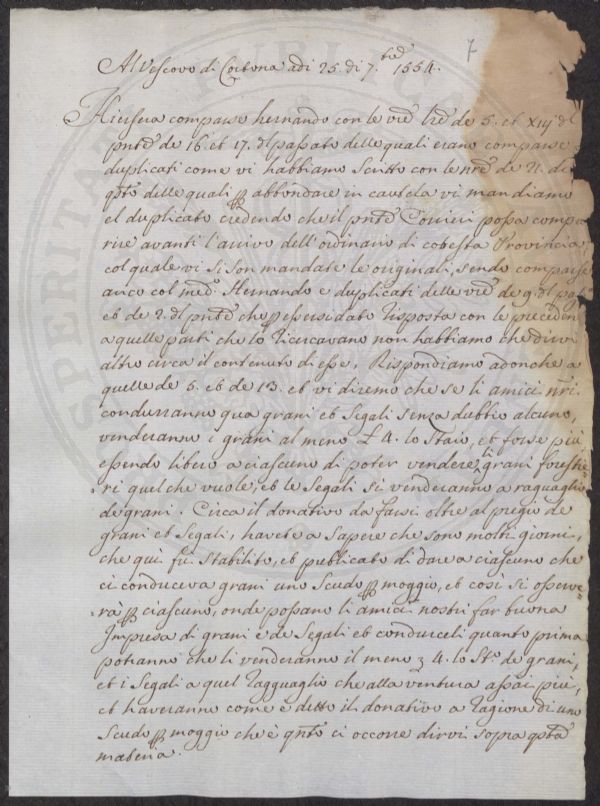 7
Al Vescovo di Cortona adi 25. di 7.bre 1554.
Hiersera comparse hernando con le vre lre de 5. et xiij del
pnte de 16. et 17. del passato delle quali erano comparse
duplicati come vi habbiamo scritto con le nre de 21. de
qsto delle quali p abbondare in cautela vi mandiamo
el duplicato credendo che il pnte Corrier possa compa
rire avanti l'arrivo dell'ordinario di cotesta Provincia
col quale vi si son mandate le originali, sendo comparse
anco col med.o Hernando e duplicati delle vre de 9. del pas
et de 2. del pnte che essersi dato risposta con le preceden
a quelle parti che lo ricercavano non habbiamo che dirvi
altro circa il contenuto di esse, Rispondiamo adonche a
quelle de 5. et de 13. et vi diremo che se li amici nri
condurranno qua grani et segali senza dubbio alcuno,
venderanno i grani al meno £ 4. lo staio, et forse più
essendo libero a ciascuno di poter vendere li grani forestie=
=ri quel che vuole, et le segali si venderanno a raguaglio
de grani. Circa il donativo da farsi oltre al pregio de
grani et segali, havete a sapere che sono molti giorni,
che quì fu stabilito, et publicato di dare a ciascuno che
ci conduceva grani uno scudo p moggio, et così si osserve=
=rà p ciascuno, onde possano li amici nostri far buona
Impresa di grani e de segali et condurceli quanto prima
potranno che li venderanno il meno 3 4. lo St.o de grani,
et i segali a quel ragguaglio che alla ventura assai più,
et haveranno come è detto il donativo a ragione di uno
scudo p moggio che è qnto ci occorre dirvi sopra qsta
materia.